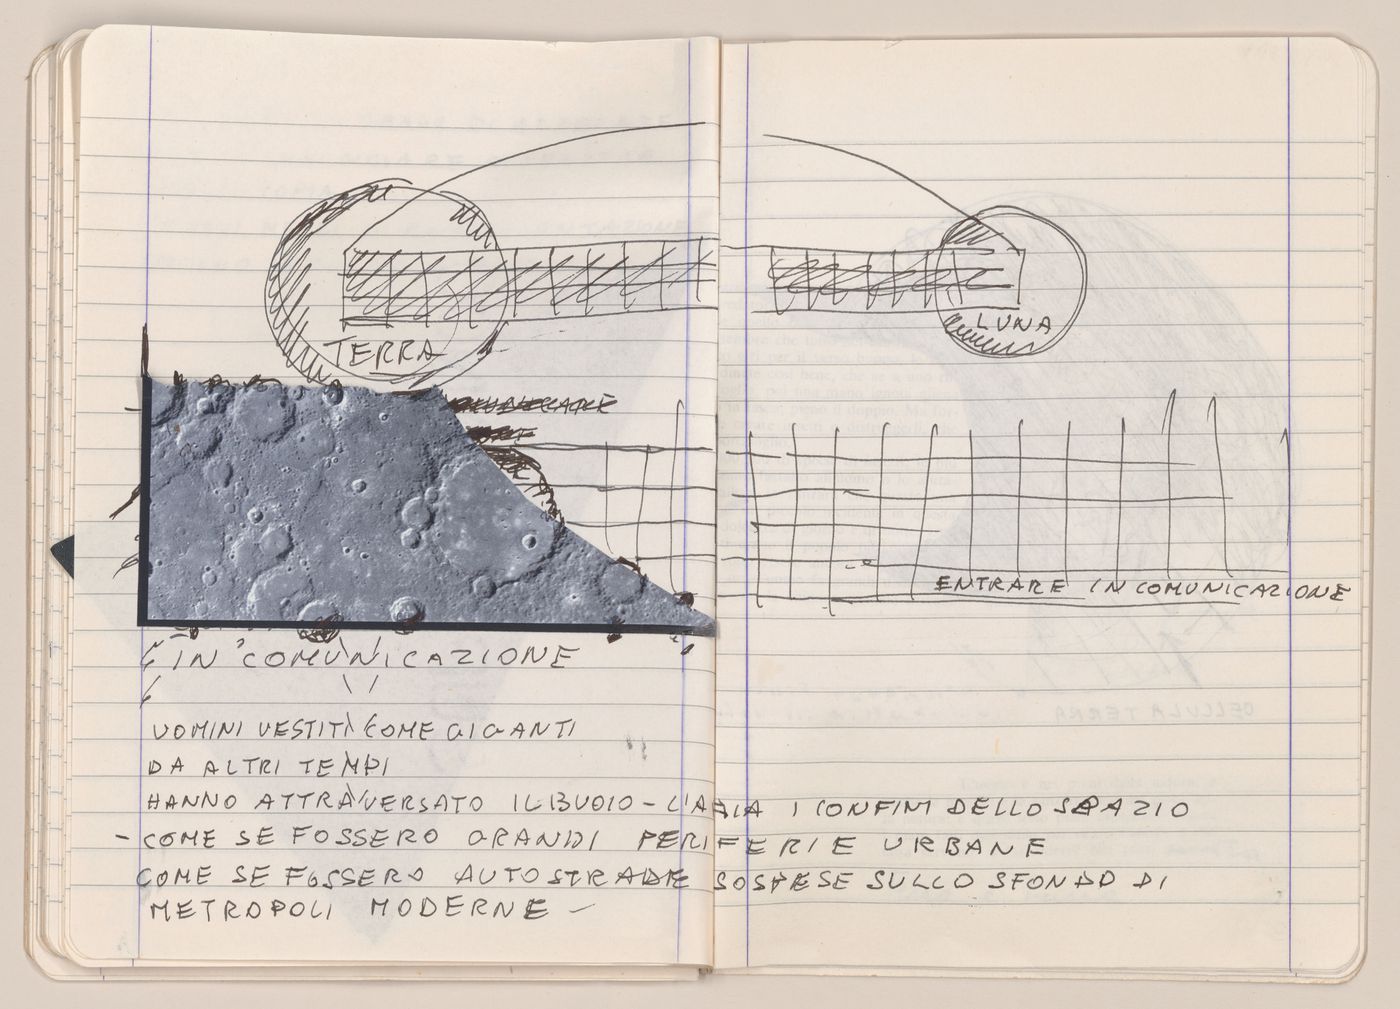 TERRA
LUNA
ENTRARE IN COMUNICAZIONE
IN COMUNICAZIONE
UOMINI VESTITI COME GIGANTI
DA ALTRI TEMPI
HANNO ATTRAVERSATO IL BUOIO - L'ARIA I CONFINI DELLO SPAZIO
- COME SE FOSSERO GRANDI PERIFERIE URBANE
COME SE FOSSERO AUTOSTRADE SOSPESE SULLO SFONDO DI
METROPOLI MODERNE -
DELLULA TERRA